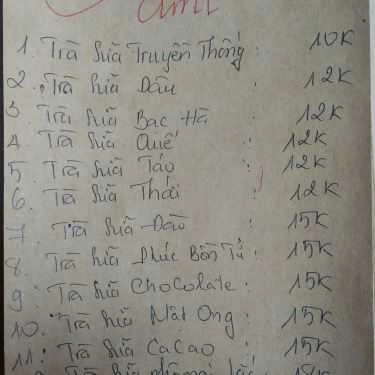 1. Trà Sữa Truyền Thống : 10K
2. Trà Sữa Dâu : 12K
3 Trà Sữa Bạc Hà : 12K
4 Trà Sữa Quế : 12K
5 Trà Sữa Táo : 12K
6. Trà Sữa Thái : 12K
7 Trà Sữa Đào : 15K
8. Trà Sữa Phúc Bồn Tử : 15K
9 Trà Sữa Chocolate : 15K
10. Trà Sữa Mật Ong : 15K
11. Trà Sữa CaCao : 15K
Trà Sữa 18K